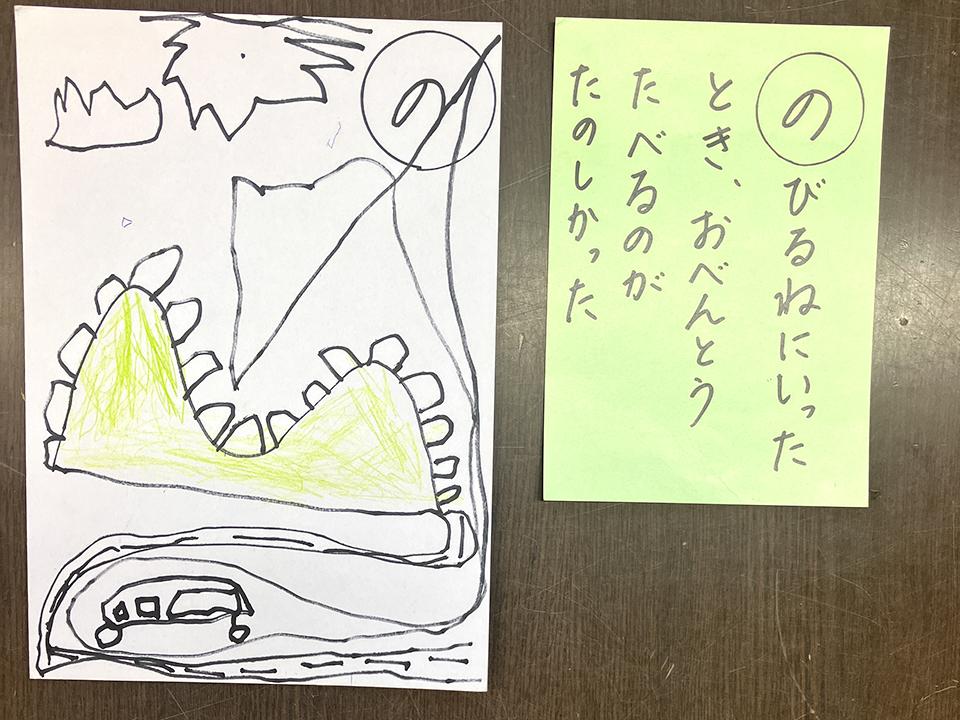 のびるねにいった
とき、おべんとう
たべるのが
たのしかった
の